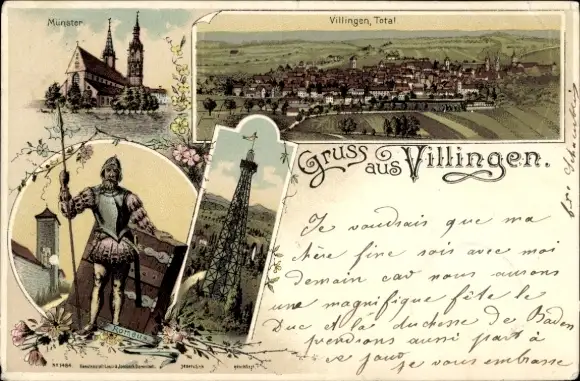 Münster
Villingen, Total
Gruss aus Villingen.
Romeius
Je voudrais que ma
chère fine sois avec moi
demain car nous aurons
une magnifique fête le
Duc et la duchesse de Baden
prendrons aussi part à
ce jour je vous embrasse
No 1484.